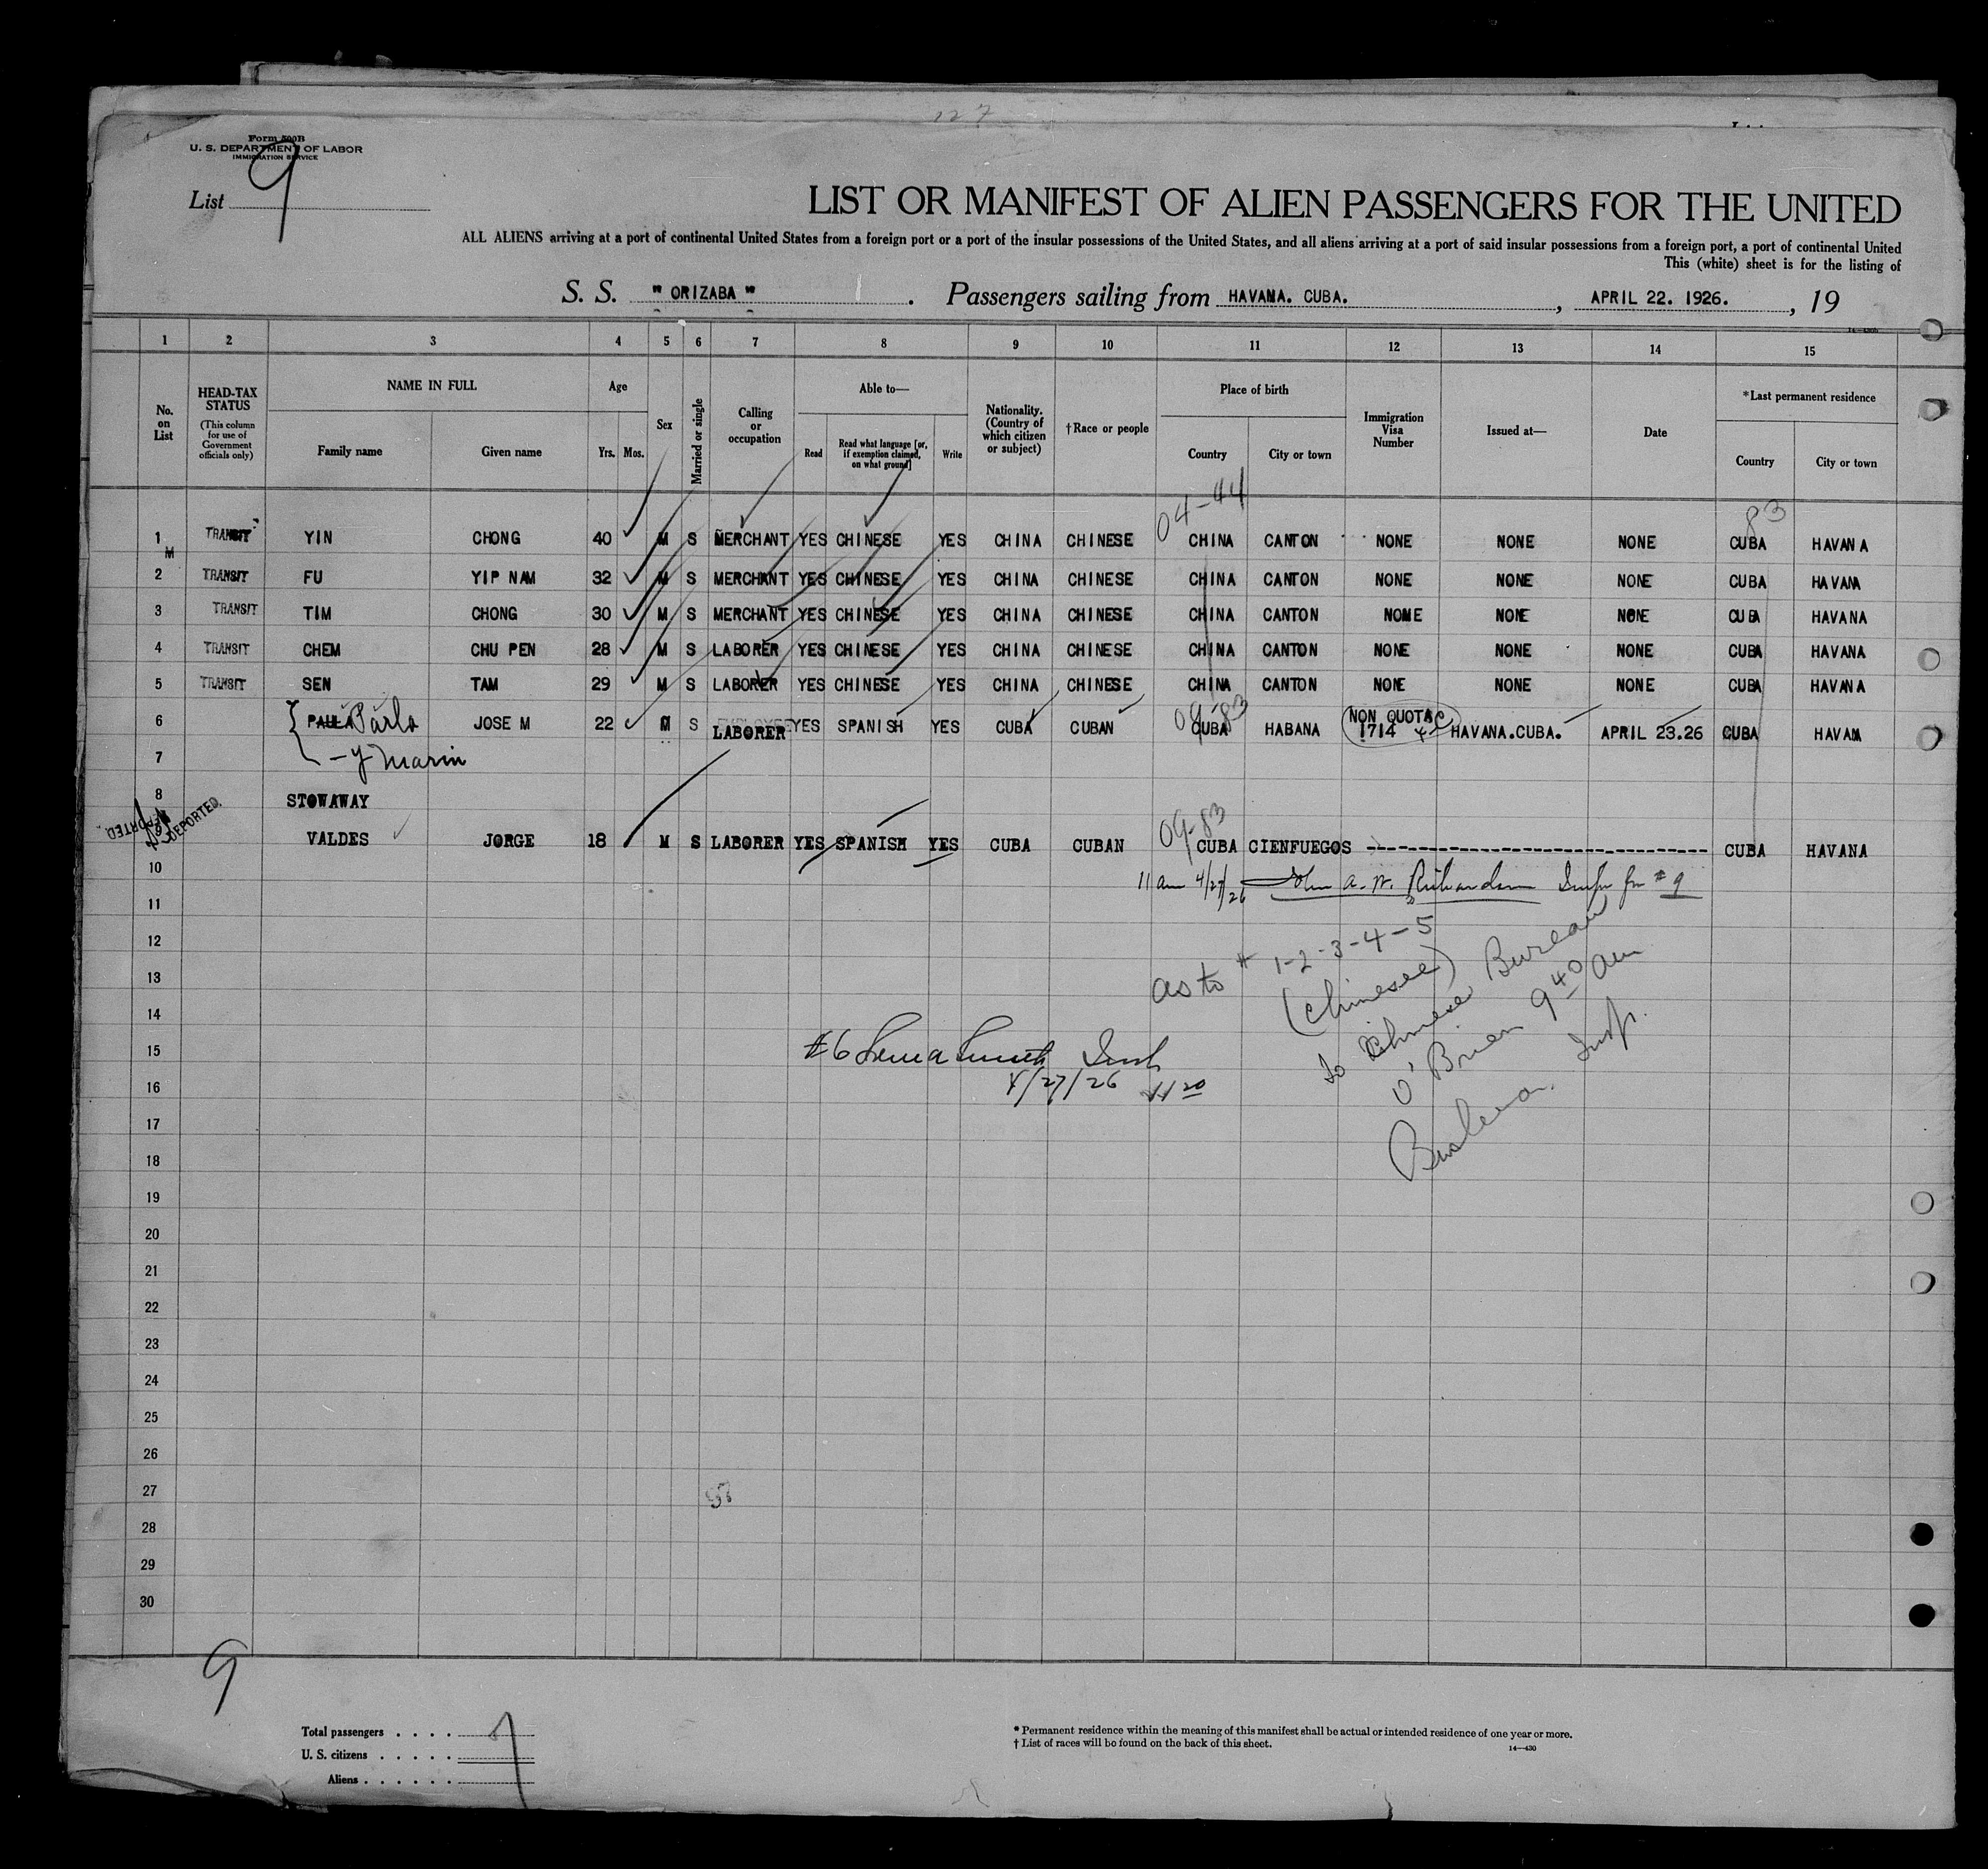 127
Form 500B
U. S. DEPARTMENT OF LABOR
IMMIGRATION SERVICE
List 9
LIST OR MANIFEST OF ALIEN PASSENGERS FOR THE UNITED
ALL ALIENS arriving at a port of continental United States from a foreign port or a port of the insular possessions of the United States, and all aliens arriving at a port of said insular possessions from a foreign port, a port of continental United
This (white) sheet is for the listing of
S. S. " ORIZABA " . Passengers sailing from HAVANA. CUBA. , APRIL 22. 1926. , 19
1 2 3 4 5 6 7 8 9 10 11 12 13 14 15
No. on List
HEAD-TAX STATUS (This column for use of Government officials only)
NAME IN FULL
Family name Given name
Age
Yrs. Mos.
Sex
Married or single
Calling or occupation
Able to—
Read Read what language [or, if exemption claimed, on what ground] Write
Nationality. (Country of which citizen or subject)
†Race or people
Place of birth
Country City or town
Immigration Visa Number
Issued at—
Date
*Last permanent residence
Country City or town
04-44 83
1 TRANSIT YIN CHONG 40 M S MERCHANT YES CHINESE YES CHINA CHINESE CHINA CANTON NONE NONE NONE CUBA HAVANA
M
2 TRANSIT FU YIP NAM 32 M S MERCHANT YES CHINESE YES CHINA CHINESE CHINA CANTON NONE NONE NONE CUBA HAVANA
3 TRANSIT TIM CHONG 30 M S MERCHANT YES CHINESE YES CHINA CHINESE CHINA CANTON NONE NONE NONE CUBA HAVANA
4 TRANSIT CHEM CHU PEN 28 M S LABORER YES CHINESE YES CHINA CHINESE CHINA CANTON NONE NONE NONE CUBA HAVANA
5 TRANSIT SEN TAM 29 M S LABORER YES CHINESE YES CHINA CHINESE CHINA CANTON NONE NONE NONE CUBA HAVANA
6 PAULA Parla JOSE M 22 M S LABORER YES SPANISH YES CUBA CUBAN 09-83 CUBA HABANA NON QUOTA 1714 HAVANA.CUBA. APRIL 23.26 CUBA HAVANA
7 - y Marin
8 STOWAWAY
DEPORTED DEPORTED. VALDES JORGE 18 M S LABORER YES SPANISH YES CUBA CUBAN 09-83 CUBA CIENFUEGOS ------------------------------ CUBA HAVANA
10 11 am 4/27/26 John A. W. Richardson Insp for #9
11
12 as to # 1-2-3-4-5
13 (Chinese)
14 to Chinese Bureau
15 O'Brien 9 40 am
Insp.
#6
16 4/27/26 11 20
17
18
19
20
21
22
23
24
25
26
27
28
29
30
9
Total passengers . . . .
U. S. citizens . . . . .
Aliens . . . . . .
7
* Permanent residence within the meaning of this manifest shall be actual or intended residence of one year or more.
† List of races will be found on the back of this sheet.
14—430